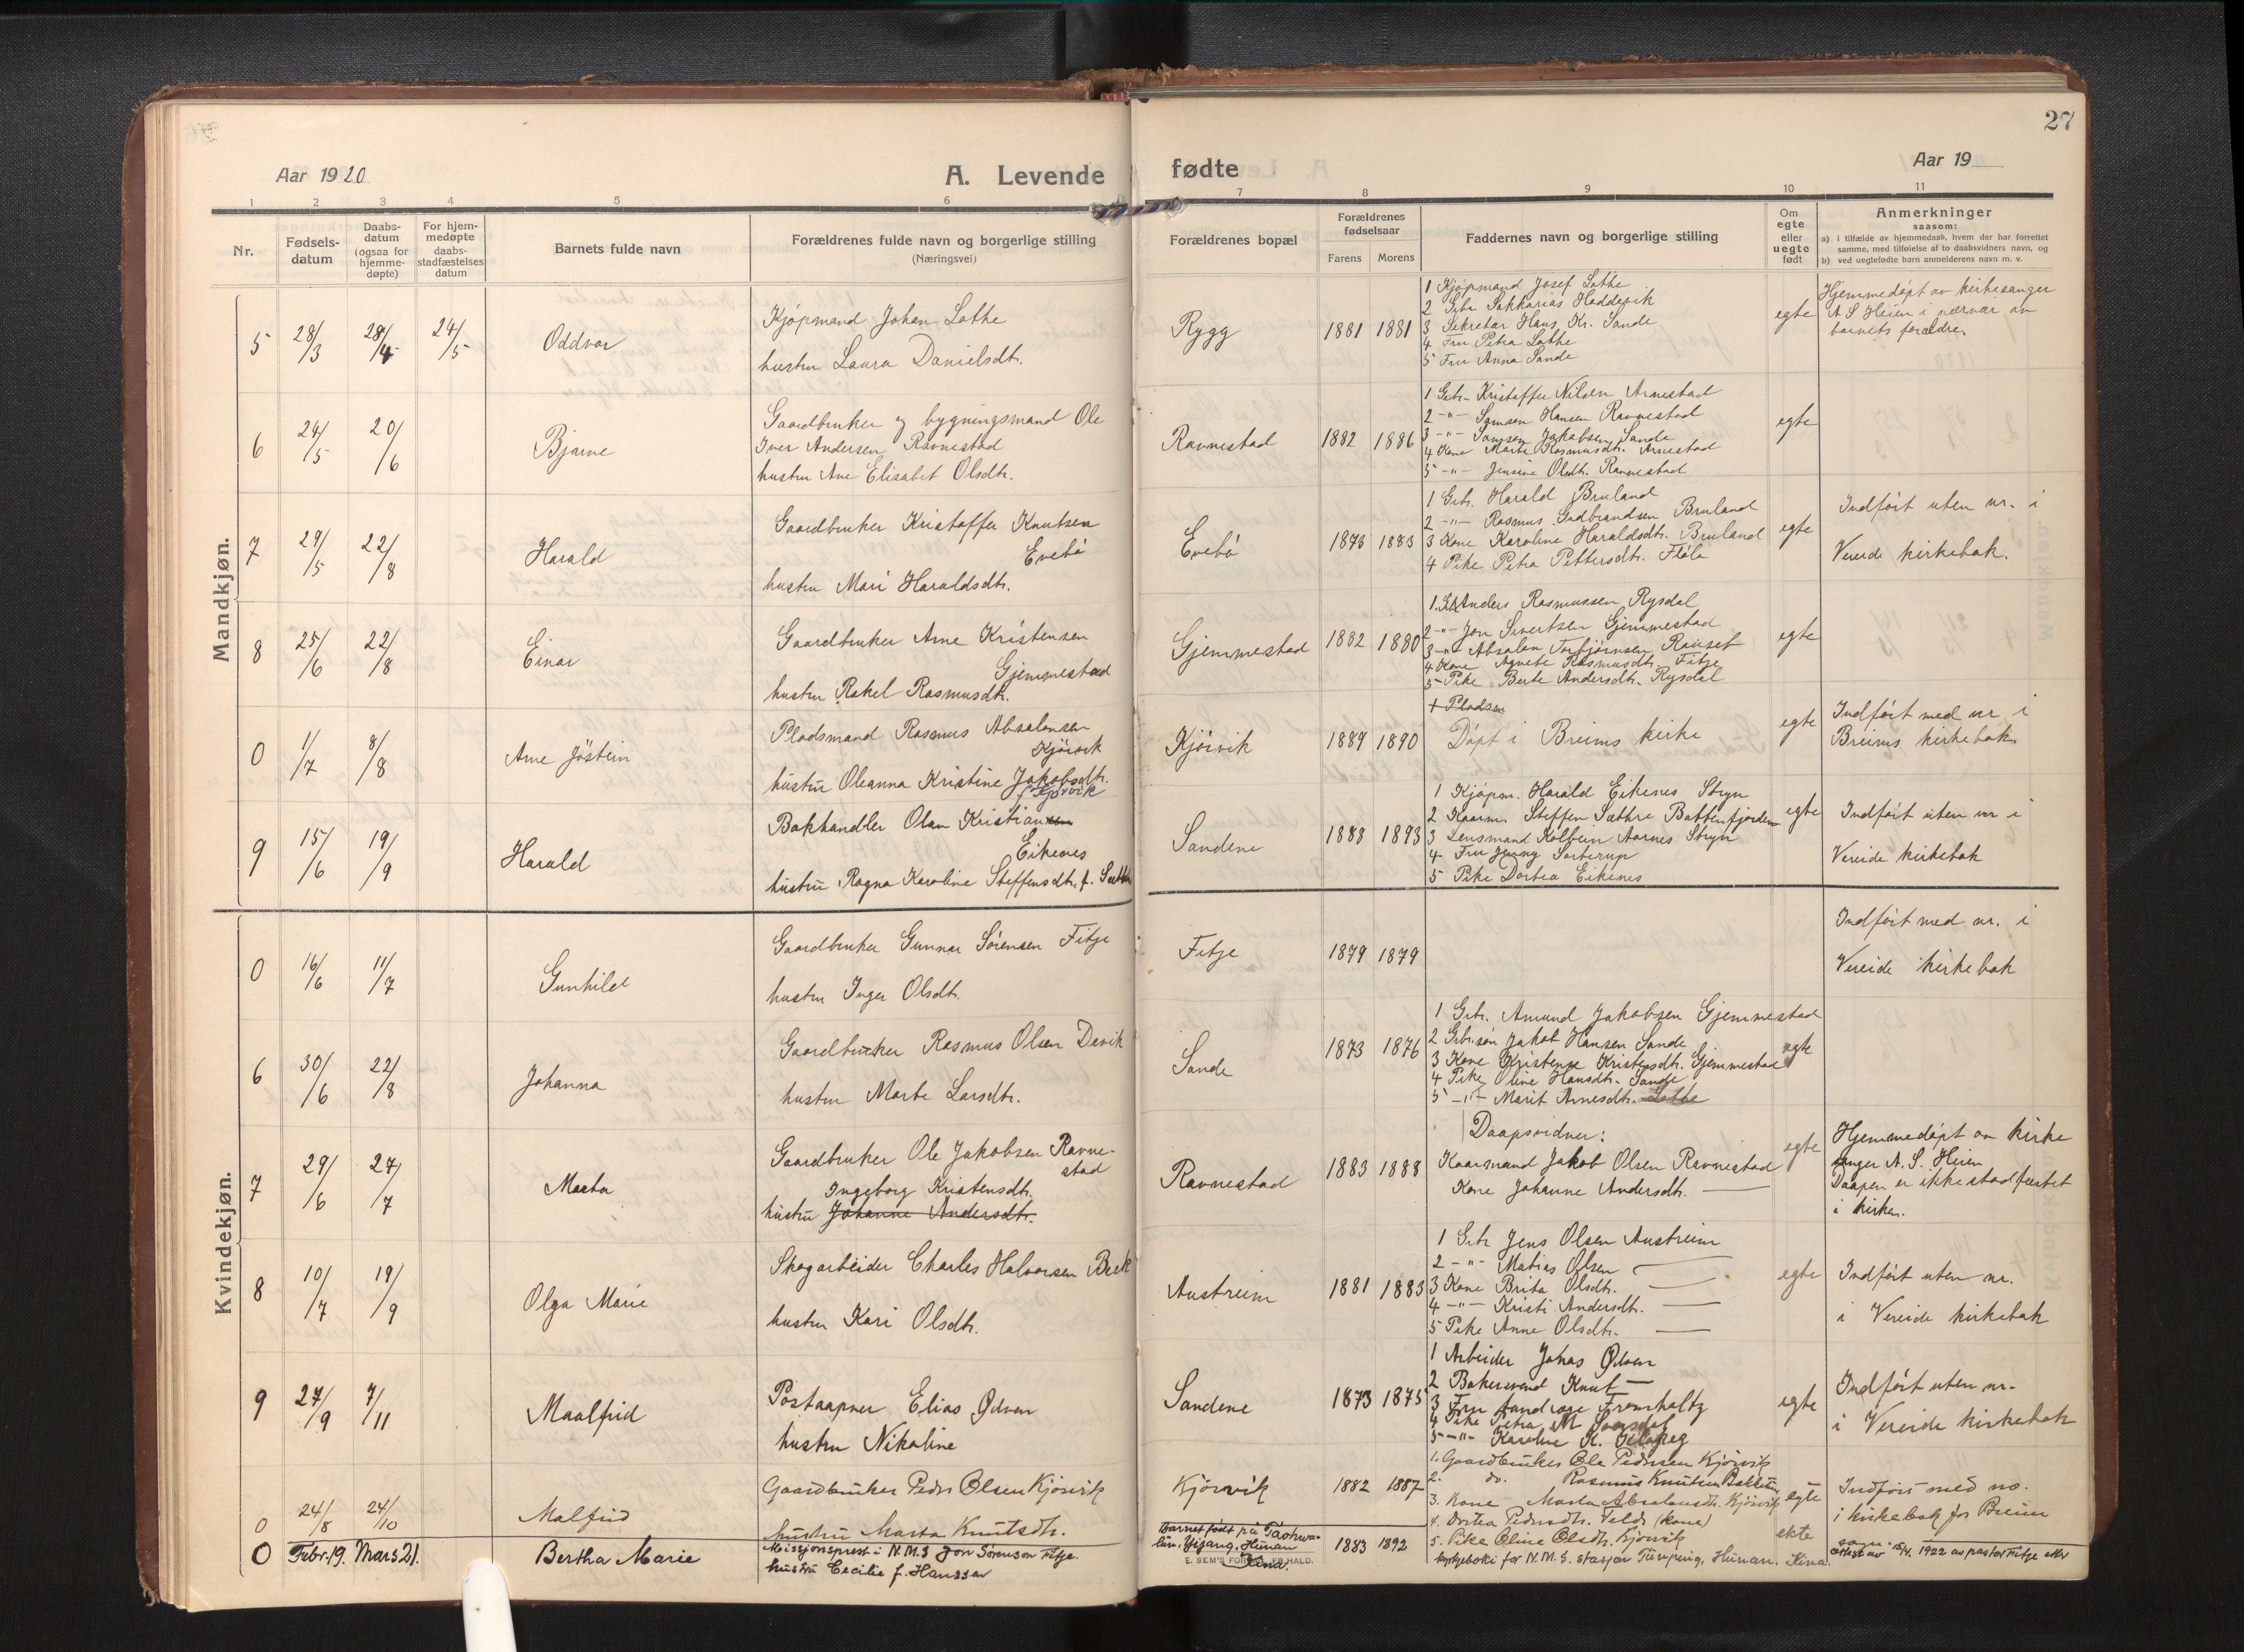 27
Aar 1920
A. Levende
fødte
Aar 19
1 2 3 4 5 6
7 8 9 10 11
Nr.
Fødsels-
datum
Daabs-
datum
(ogsaa for
hjemme-
døpte)
For hjem-
medøpte
daabs-
stadfæstelses
datum
Barnets fulde navn
Forældrenes fulde navn og borgerlige stilling
(Næringsvei)
Forældrenes bopæl
Forældrenes
fødselsaar
Farens Morens
Faddernes navn og borgerlige stilling
Om
egte
eller
uegte
født
Anmerkninger
saasom:
a) i tilfælde av hjemmedaab, hvem der har forrettet
samme, med tilføielse af to daabsvidners navn, og
b) ved uegtefødte barn anmelderens navn m. v.
Mandkjøn.
5 28/3 28/4 24/5 Oddvar
Kjøpmand Johan Lothe
hustru Laura Danielsdtr.
Rygg 1881 1881
1 Kjøpmand Josef Lothe
2 Sakkarias Haddevik
3 Sekretær Hans Kr. Sande
4 Fru Petra Lothe
5 Fru Anna Sande
egte
Hjemmedøpt av kirkesanger
A S Heien i nærvær av
barnets forældre.
6 24/5 20/6 Bjarne
Gaardbruker og bygningsmand Ole
Iver Andersen Ravnestad
hustru Ane Elisabet Olsdtr.
Ravnestad 1882 1886
1 Gbr. Kristoffer Nilsen Arnestad
2 -"- Samson Hansen Ravnestad
3 -"- Samson Jakobsen Sande
4 Kone Marte Rasmusdtr. Arnestad
5 -"- Jensine Olsdtr. Ravnestad
egte
7 29/5 22/8 Harald
Gaardbruker Kristoffer Knutsen
Evebø
hustru Mari Haraldsdtr.
Evebø 1878 1883
1 Gbr. Harald Bruland
2 -"- Rasmus Gudbrandsen Bruland
3 Kone Karoline Haraldsdtr. Bruland
4 Pike Petra Pettersdtr. Fløle
egte
Indført uten nr. i
Vereide kirkebok.
8 25/6 22/8 Einar
Gaardbruker Arne Kristensen
Gjemmestad
hustru Rakel Rasmusdtr.
Gjemmestad 1882 1880
1. Anders Rasmussen Rysdal
2 -"- Jon Sivertsen Gjemmestad
3 -"- Absalon Torbjørnsen Rauset
4 Kone Agnete Rasmusdtr. Fitje
5 Pike Berte Andersdtr. Rysdal
egte
0 1/7 8/8 Arne Jøstein
Pladsmand Rasmus Absalonsen
Kjørvik
hustru Oleanna Kristine Jakobsdtr.
f. Kjørvik
Kjørvik 1889 1890
1 Pladsm
Døpt i Breims kirke
egte
Indført med nr i
Breims kirkebok.
9 15/6 19/9 Harald
Bokhandler Olav Kristian
Eikenes
hustru Ragna Karoline Steffensdtr. f. Sætter
Sandene 1888 1893
1 Kjøpm. Harald Eikenes Stryn
2 Kaarm. Steffen Sæthre Battenfjorden
3 Lensmand Kolbein Aarnes Stryn
4 Fru Jenny Sorterup
5 Pike Dortea Eikenes
egte
Indført uten nr i
Vereide kirkebok
Kvindekjøn.
0 16/6 11/7 Gunhild
Gaardbruker Gunnar Sørensen Fitje
hustru Inger Olsdtr.
Fitje 1879 1879
Indført med nr. i
Vereide kirkebok
6 30/6 22/8 Johanna
Gaardbruker Rasmus Olsen Devik
hustru Marte Larsdtr.
Sande 1873 1876
1 Gbr. Amund Jakobsen Gjemmestad
2 Gbr.søn Jakob Hansen Sande
3 Kone Kristense Kristensdtr. Gjemmestad
4 Pike Oline Hansdtr. Sande
5 -"- Marit Arnesdtr. Lothe
egte
7 29/6 27/7 Marta
Gaardbruker Ole Jakobsen Ravne-
stad
Ingeborg Kristensdtr.
hustru Johanne Andersdtr.
Ravnestad 1883 1888
Daapsvidner:
Kaarmand Jakob Olsen Ravnestad
Kone Johanne Andersdtr. —
egte
Hjemmedøpt av kirke
sanger A. S. Heien
Daapen er ikke stadfæstet
i kirken.
8 10/7 19/9 Olga Marie
Skogarbeider Charles Halvorsen Beck
hustru Kari Olsdtr.
Austreim 1881 1883
1 Gbr Jens Olsen Austreim
2 -"- Matias Olsen —
3 Kone Brita Olsdtr. —
4 -"- Kristi Andersdtr. —
5 Pike Anne Olsdtr. —
egte
Indført uten nr.
i Vereide kirkebok
9 27/9 7/11 Maalfrid
Postaapner Elias Ødven
hustru Nikoline
Sandene 1873 1875
1 Arbeider Johas Ødven
2 Bakersvend Knut —
3 Fru Fromholtz
4 Pike Petra M
5 -"- Karoline K.
egte
Indført uten nr.
i Vereide kirkebok
0 24/8 24/10 Malfrid
Gaardbruker Peder Olsen Kjørvik
hustru Marta Knutsdtr.
Kjørvik 1882 1887
1. Gaardbruker Ole Pedersen Kjørvik
2. do. Rasmus Knutsen
3. Kone Marta Absalonsdtr. Kjørvik
4. Dortea Pedersdtr. Felde (kone)
5. Pike Oline Olsdtr. Kjørvik
egte
Indført med no.
i kirkebok for Breim
0 Febr. 19. Mars 21. Bertha Marie
Missjonsprest i N.M.S Jon Sørenson Fitje
hustru Cecilie f. Hanssen
Barnet født på Taohwa-
lun, Yiyang, Hunan
Kina.
E. SEM'S
1883 1892
for N.M.S. stasjon Hunan. Kina.
ekte
attest av 15/4. 1922 av pastor Fitje